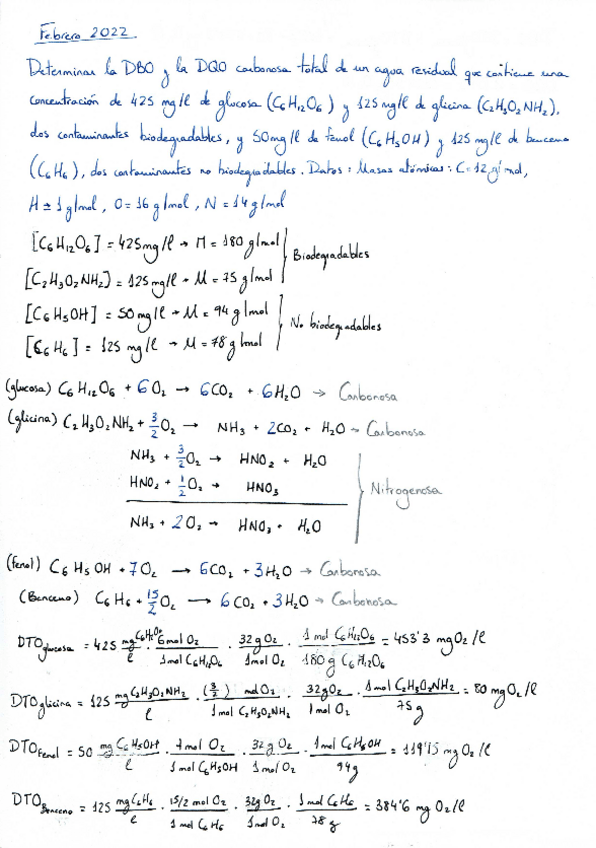 Febrero 2022
Determinar la DBO y la DQO carbonosa total de un agua residual que contiene una
concentración de 425 mg/l de glucosa (C₆H₁₂O₆) y 125 mg/l de glicina (C₂H₃O₂NH₂),
dos contaminantes biodegradables, y 50mg/l de fenol (C₆H₅OH) y 125 mg/l de benceno
(C₆H₆), dos contaminantes no biodegradables. Datos: Masas atómicas: C=12 g/mol,
H = 1 g/mol, O=16 g/mol, N = 14 g/mol
[C₆H₁₂O₆] = 425mg/l → M = 180 g/mol
Biodegradables
[C₂H₃O₂NH₂) = 125 mg/l → M = 75 g/mol
[C₆H₅OH] = 50 mg/l → M = 94 g/mol
No biodegradables
[C₆H₆] = 125 mg/l → M = 78 g/mol
(glucosa) C₆H₁₂O₆ + 6O₂ → 6CO₂ + 6H₂O → Carbonosa
(glicina) C₂H₃O₂NH₂ + 3/2 O₂ → NH₃ + 2CO₂ + H₂O → Carbonosa
NH₃ + 3/2 O₂ → HNO₂ + H₂O
HNO₂ + 1/2 O₂ → HNO₃
Nitrogenosa
NH₃ + 2O₂ → HNO₃ + H₂O
(Fenol) C₆H₅OH + 7O₂ → 6CO₂ + 3H₂O → Carbonosa
(Benceno) C₆H₆ + 15/2 O₂ → 6CO₂ + 3H₂O → Carbonosa
DTO glucosa = 425 mg C₆H₁₂O₆/l · 6mol O₂/1mol C₆H₁₂O₆ · 32g O₂/1mol O₂ · 1 mol C₆H₁₂O₆/180 g C₆H₁₂O₆ = 453'3 mg O₂/l
DTO glicina = 125 mg C₂H₃O₂NH₂/l · (3/2) mol O₂/1 mol C₂H₃O₂NH₂ · 32g O₂/1mol O₂ · 1 mol C₂H₃O₂NH₂/75 g = 80 mg O₂/l
DTO Fenol = 50 mg C₆H₅OH/l · 7 mol O₂/1 mol C₆H₅OH · 32 g O₂/1mol O₂ · 1 mol C₆H₅OH/94g = 119'15 mg O₂/l
DTO Benceno = 125 mg C₆H₆/l · 15/2 mol O₂/1 mol C₆H₆ · 32g O₂/1mol O₂ · 1 mol C₆H₆/78 g = 384'6 mg O₂/l